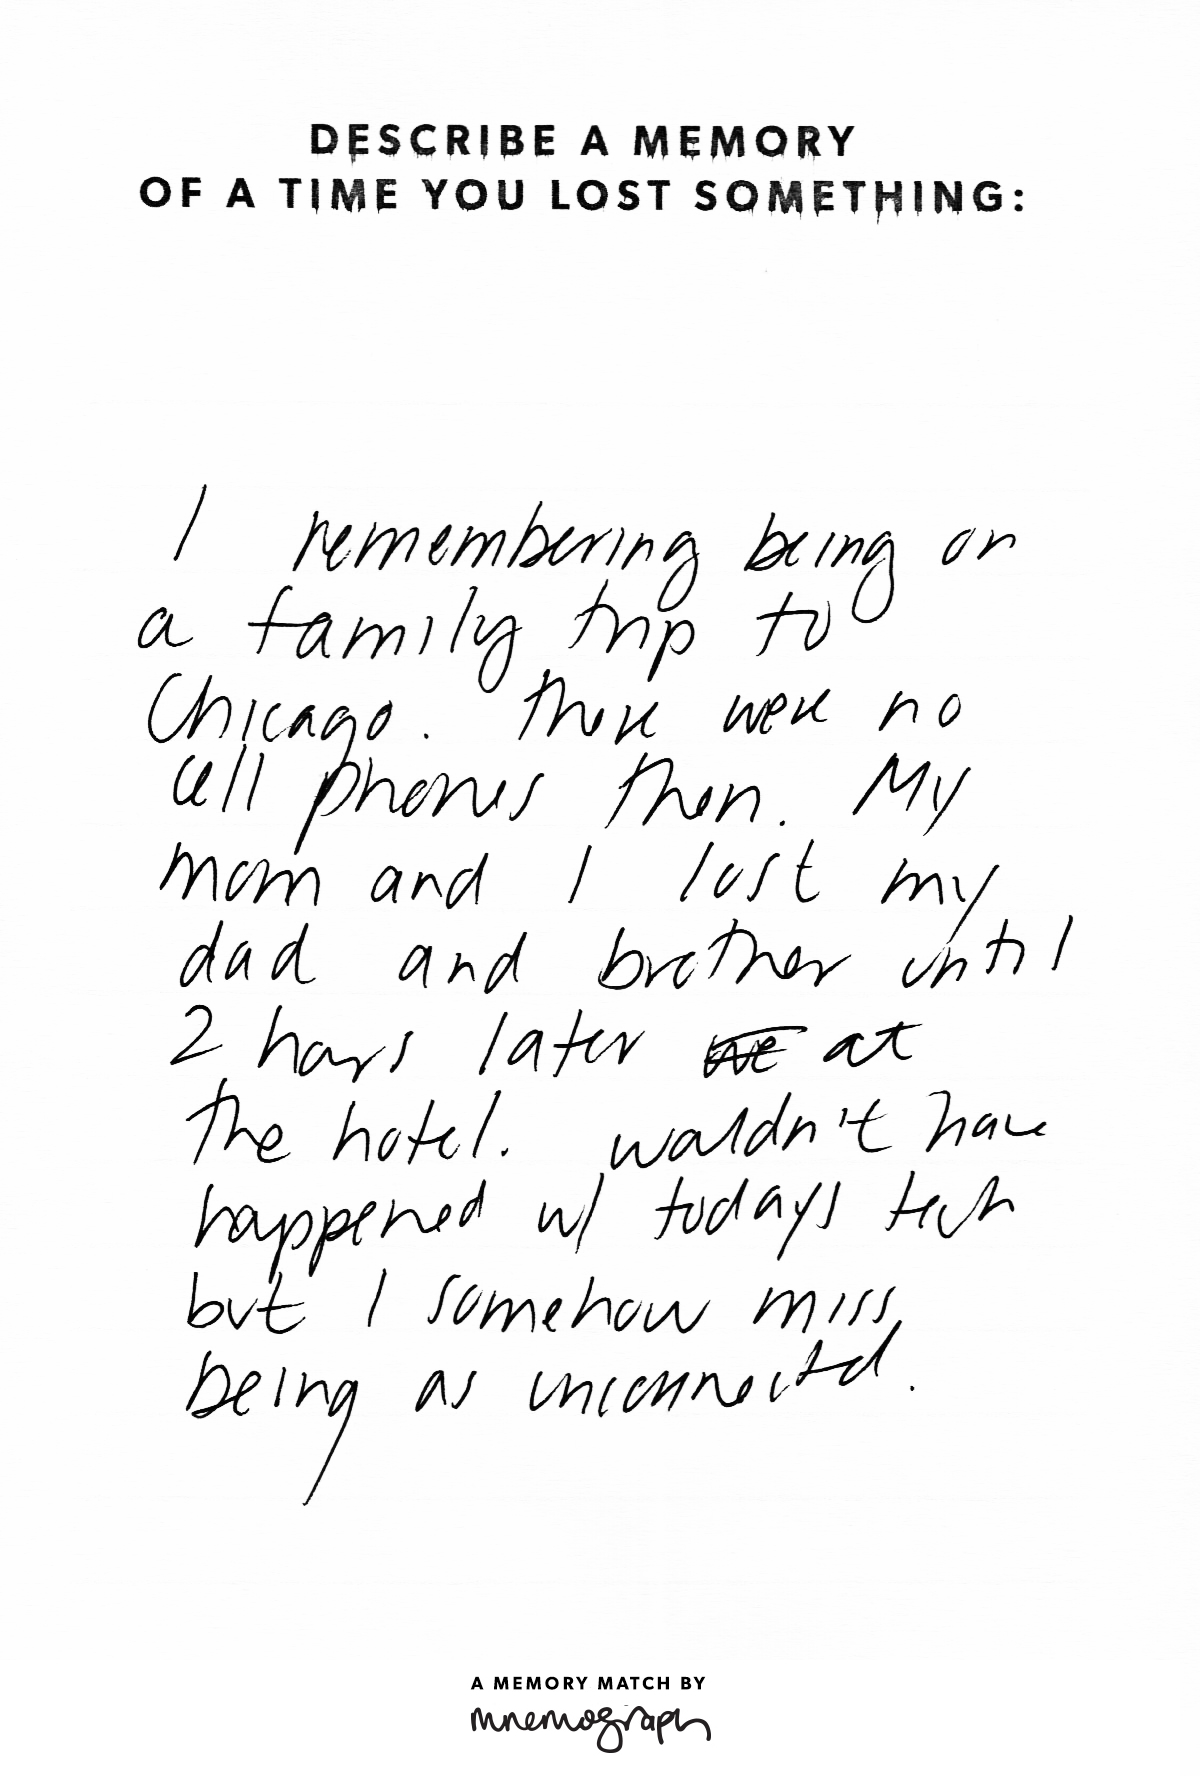 DESCRIBE A MEMORY
OF A TIME YOU LOST SOMETHING:
I remembering being on
a family trip to
Chicago. There were no
cell phones then. My
mom and I lost my
dad and brother until
2 hours later we at
the hotel. Wouldn't have
happened w/ todays tech
but I somehow miss
being as unconnected.
A MEMORY MATCH BY
mnemograph